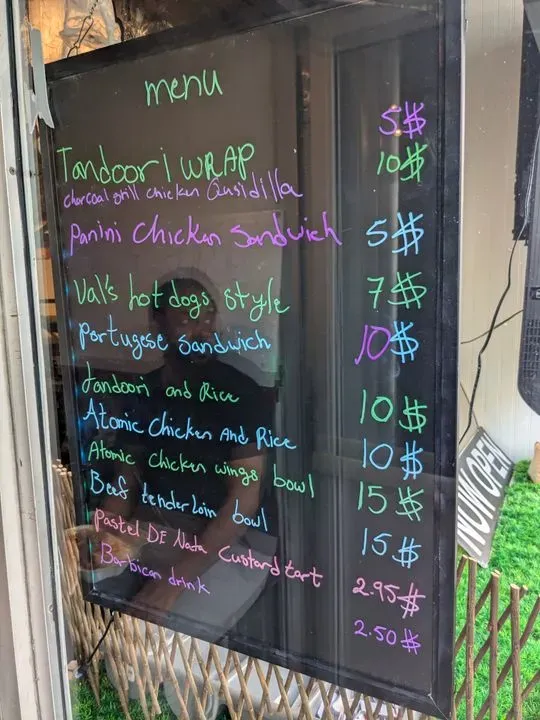 menu
Tandoori WRAP 5$
charcoal grill chicken Qusidilla 10$
Panini Chicken Sandwich 5$
Val's hotdogs style 7$
Portugese Sandwich 10$
Tandoori and Rice 10$
Atomic Chicken And Rice 10$
Atomic Chicken wings bowl 15$
Beef tenderloin bowl 15$
Pastel DE Nata Custard tart 2.95$
Barbican drink 2.50$
NOW OPEN